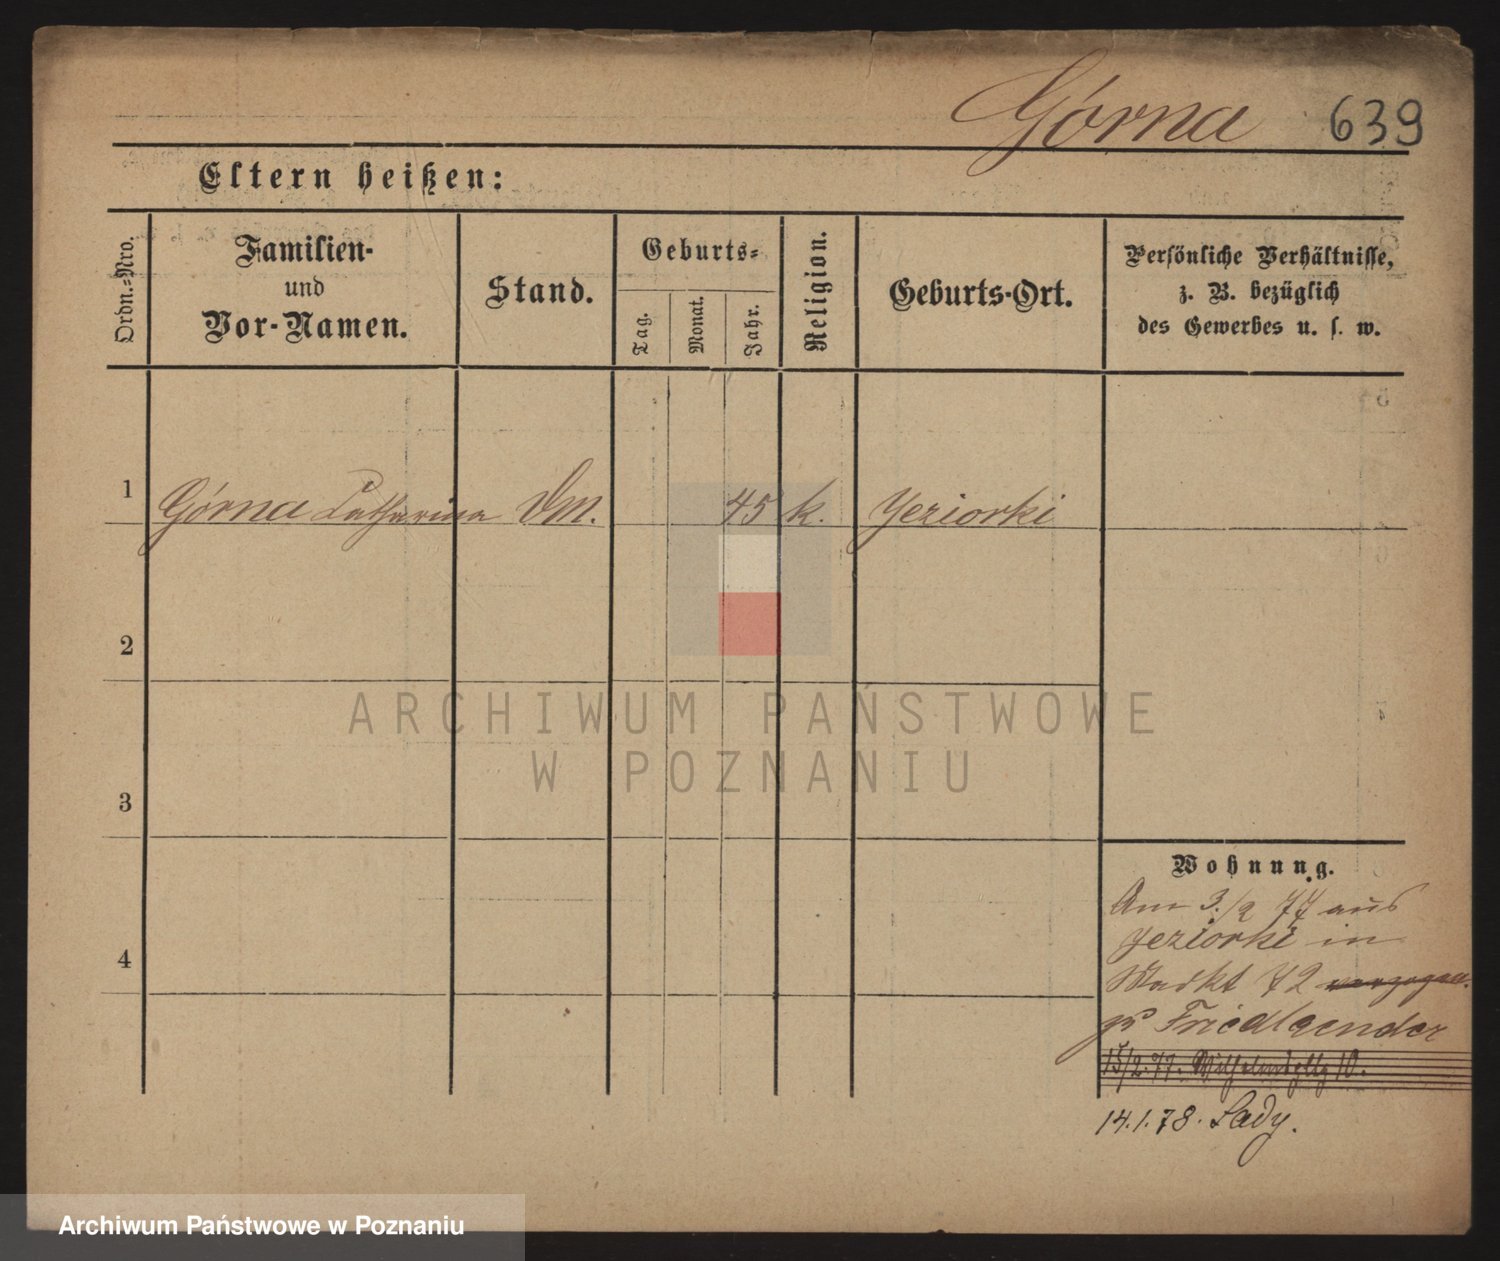 Górna 639
Eltern heißen:
Ordn.=Nro.
Familien-
und
Vor-Namen.
Stand.
Geburts=
Tag.
Monat.
Jahr.
Religion.
Geburts-Ort.
Persönliche Verhältnisse,
z. B. bezüglich
des Gewerbes u. s. w.
1 Górna Catharina DM. 45 k. Jeziorki
2
3
4
ARCHIWUM PAŃSTWOWE
W POZNANIU
Wohnung.
Am 3./2 77 aus
Jeziorki in
Markt 72 verzogen.
zu Friedlaender
15/2. 77. 10.
14.1.78. Lady.
Archiwum Państwowe w Poznaniu